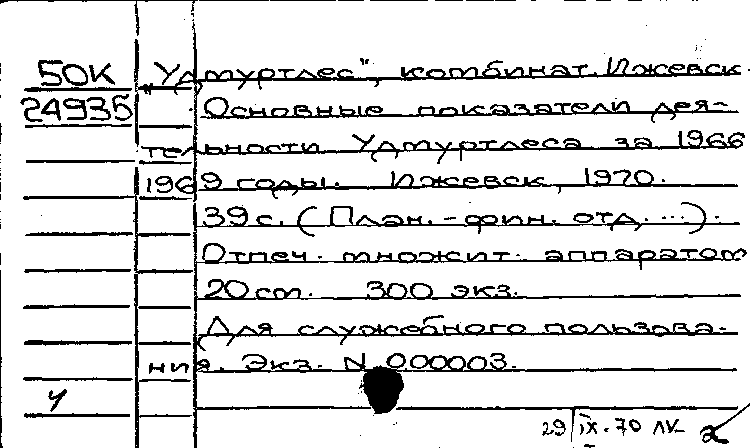 50К
24935
"Удмуртлес", комбинат. Ижевск.
Основные показатели дея-
тельности Удмуртлеса за 1966
1969 годы. Ижевск, 1970.
39 с. (План.-фин. отд. ...).
Отпеч. множит. аппаратом
20 см. 300 экз.
Для служебного пользова-
ния. Экз. N 000003.
у
29 IX.70